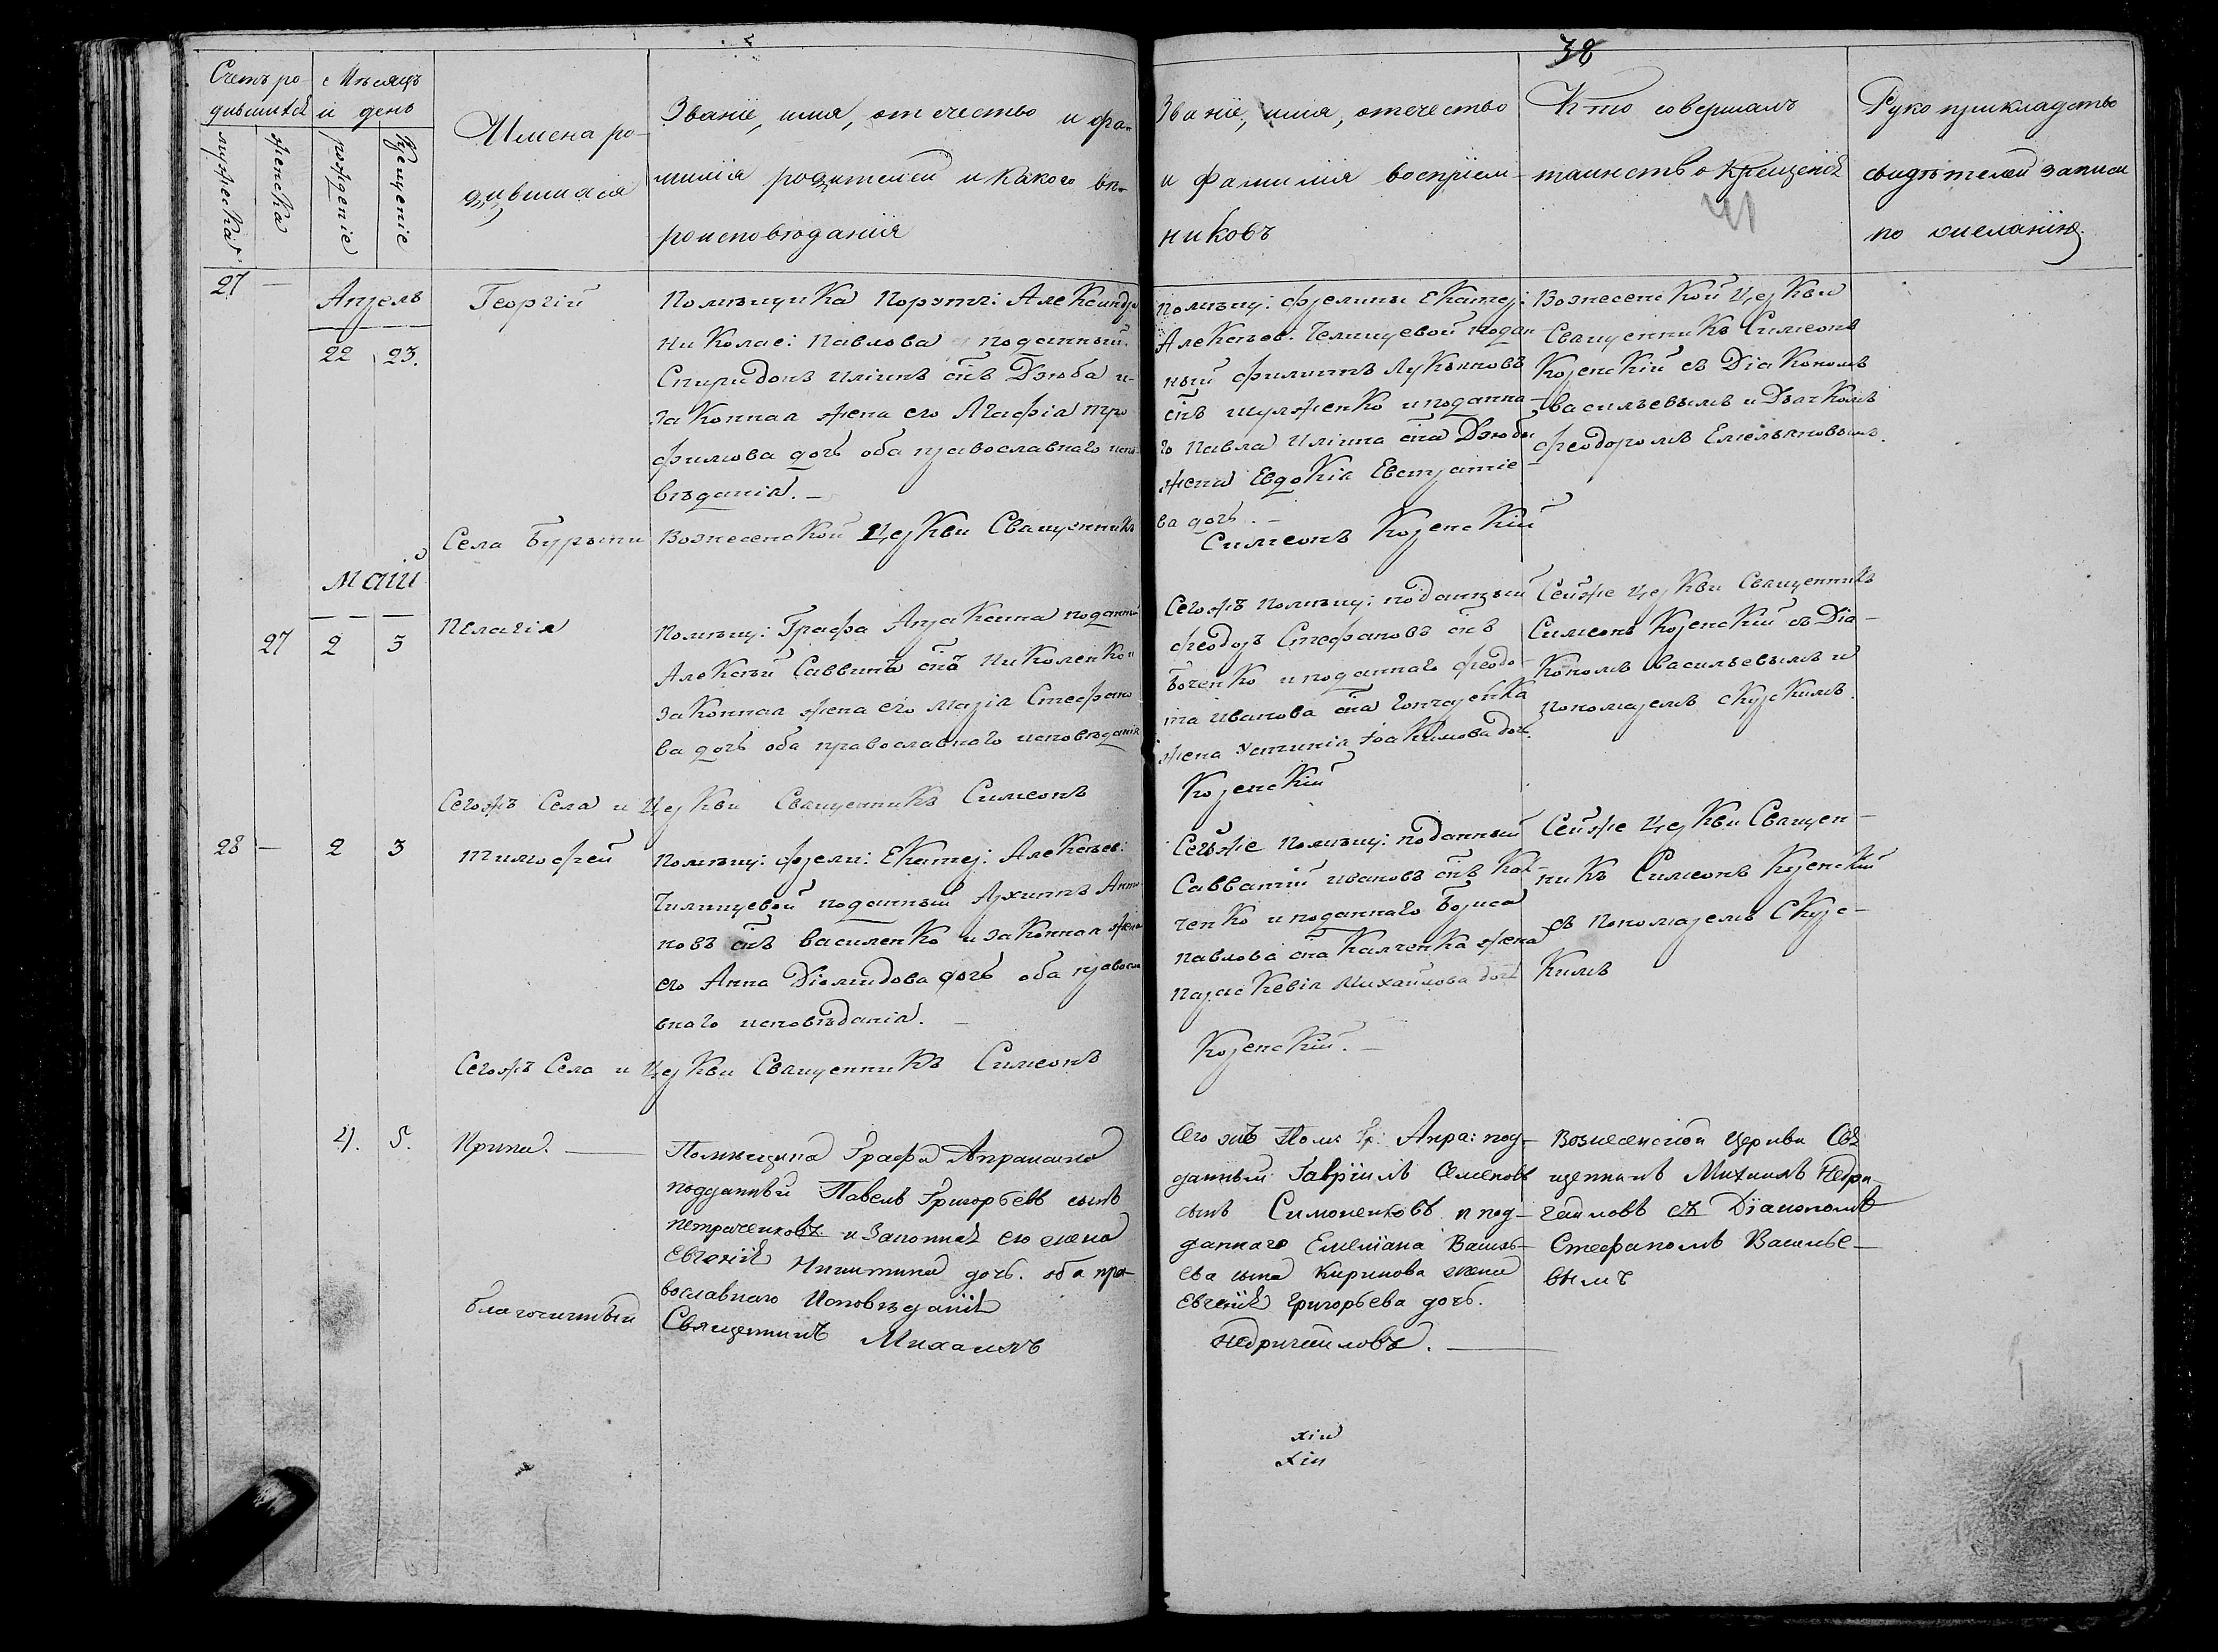 38
Счетъ ро-
дившихся
Мѣсяцъ
и день
мужеска
женска
рожденіе
Крещеніе
Имена ро-
дившихся
Званіе, имя, отечество и фа-
милія родителей и какого вѣ-
роисповѣданія
Званіе, имя, отечество
и фамилія воспріем-
никовъ
Кто совершалъ
таинство Крещенія
Рукоприкладство
свидѣтелей записи
по желанію
27 —
Апрель
22 23.
Георгій
Помѣщика Поруч: Александра
Николае: Павлова подданный
Спиридонъ Иліинъ снъ Дзюба и
законная жена его Агафія Тро-
фимова дочь оба православнаго испо-
вѣданія. —
помѣщ: Фрелины Екатер:
Алексѣев: Челищевой подан-
ный Филиппъ Лукьяновъ
снъ Шулженко и поданна-
го Павла Иліина сна Дзюбы
жена Евдокія Евстратіе-
ва дочь. —
Вознесенской Церкви
Священникъ Симеонъ
Коренскій съ Діакономъ
Васильевымъ и Дьячкомъ
Феодоромъ Емельяновымъ.
Села Бурыни Вознесенской Церкви Священникъ
Симеонъ Коренскій
Май
27 2 3
Пелагія
Помѣщ: Графа Апраксина поданный
Алексѣй Саввинъ снъ Николенко и
законная жена его Марія Стефано-
ва дочь оба православнаго исповѣданія
Сегожъ помѣщ: поданный
Феодоръ Стефановъ снъ
Боченко и поданнаго Федо-
та Иванова сна Гончаренка
жена Устинія Іоакимова доч.
Сейже церкви Священникъ
Симеонъ Коренскій съ Діа-
кономъ Васильевымъ и
пономаремъ Скурскимъ.
Сегожъ Села и Церкви Священникъ Симеонъ
Коренскій
28 — 2 3
Тимофей
Помѣщ: Фрели: Екатер: Алексѣев:
Чилищевой поданный Архипъ Анто-
новъ снъ Василенко и законная жена
его Анна Діомидова дочь оба правосла-
внаго исповѣданія. —
Сейже помѣщ: поданный
Савватій Ивановъ снъ Кал-
ченко и поданнаго Бориса
Павлова сна Калченка жена
Параскевія Михайлова дочь
Сейже церкви Священ-
никъ Симеонъ Коренскій
съ пономаремъ Скурс-
кимъ
Сегожъ Села и Церкви Священникъ Симеонъ
Коренскій. —
4. 5.
Ирина. —
Помѣщика Графа Апраксина
подданный Павелъ Григорьевъ сынъ
Петраченковъ и Законная его жена
Евгенія Никитина дочь. оба пра-
вославнаго Исповѣданія
Его жъ Пом: Гр: Апра: под-
данный Гавріилъ Семеновъ
сынъ Симоненковъ и под-
даннаго Емеліана Василь-
ева сына Кирикова жена
Евгенія Григорьева дочь.
Вознесенской церкви Свя-
щенникъ Михаилъ Недри-
гайловъ съ Діакономъ
Стефаномъ Василье-
вымъ
благочинный Священникъ Михаилъ
Недригайловъ. —